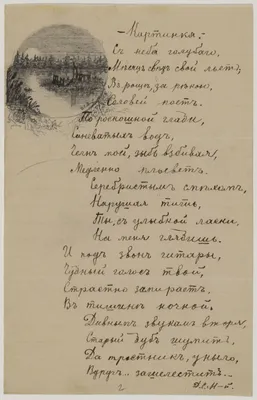 Картинка.
Съ неба голубаго,
Мѣсяцъ свѣтъ свой льетъ,
Въ рощѣ, за рѣкою,
Соловей поетъ.
По роскошной глади,
Сонныхъ водъ,
Челнъ мой, зыбь взбивая,
Медленно плыветъ.
Серебристымъ смѣхомъ,
Нарушая тишь,
Ты, съ улыбкой ласки,
На меня глядишь.
И подъ звонъ гитары,
Чудный голосъ твой,
Страстно запираетъ
Въ тишинѣ ночной.
Дивнымъ звукамъ вторя,
Старый дубъ шумитъ,
Да тростникъ, уныло,
Вдругъ.. зашелеститъ..